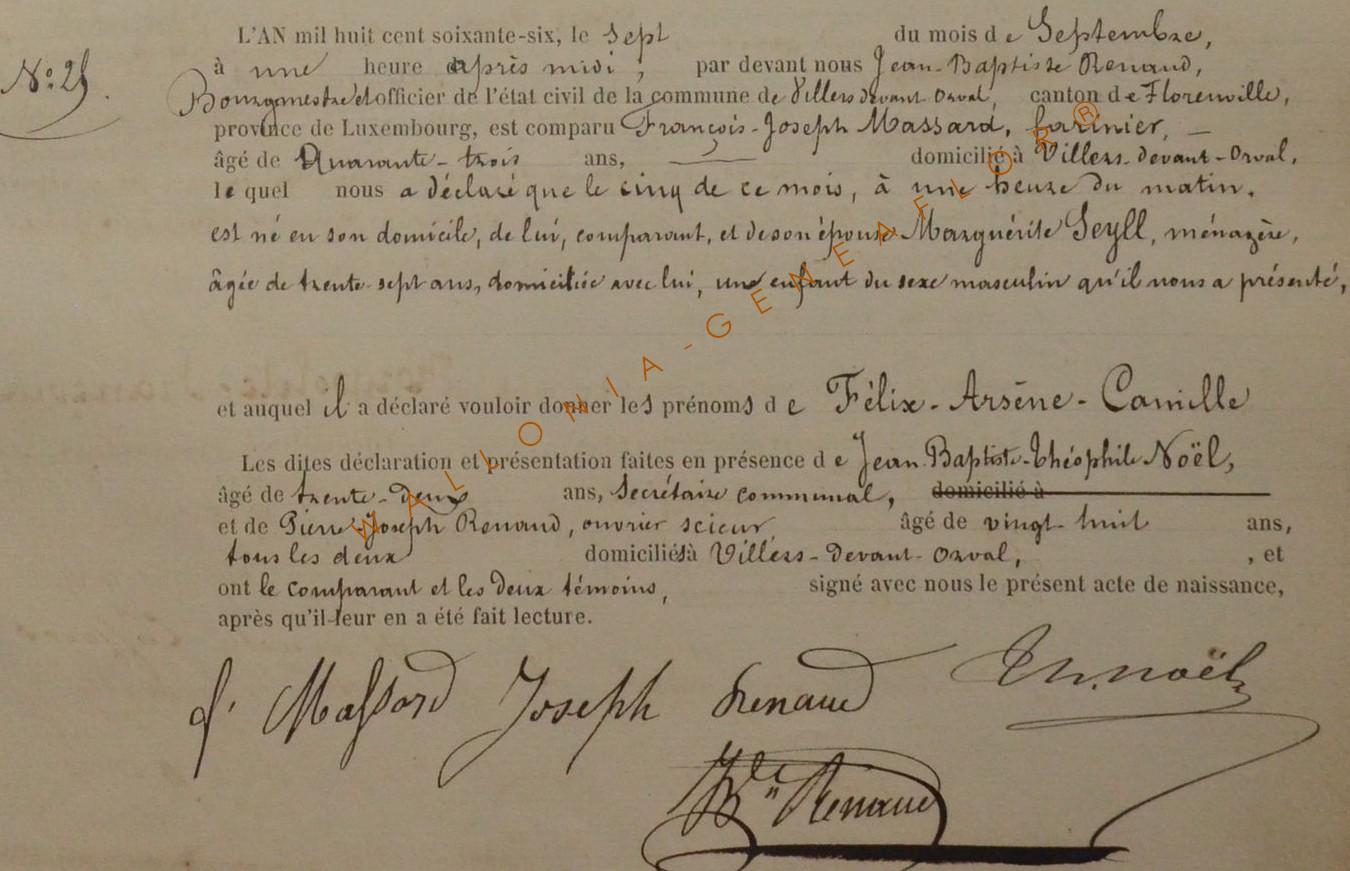 L'AN mil huit cent soixante-six, le sept du mois de Septembre,
N.o 25.
à une heure après midi, par devant nous Jean-Baptiste Renaud,
Bourgmestre et officier de l'état civil de la commune de Villers devant Orval, canton de Florenville,
province de Luxembourg, est comparu François-Joseph Massard, farinier, —
âgé de Quarante-trois ans, domicilié à Villers-devant-Orval,
le quel nous a déclaré que le cinq de ce mois, à une heure du matin,
est né en son domicile, de lui, comparant, et de son épouse Marguérite Seyll, ménagère,
âgée de trente-sept ans, domiciliée avec lui, une enfant du sexe masculin qu'il nous a présenté,
et auquel il a déclaré vouloir donner les prénoms de Félix-Arsène-Camille
Les dites déclaration et présentation faites en présence de Jean-Baptiste-Théophile Noël,
âgé de trente-deux ans, Secrétaire communal, domicilié à
et de Pierre-Joseph Renaud, ouvrier scieur, âgé de vingt-huit ans,
tous les deux domiciliés à Villers-devant-Orval, , et
ont le comparant et les deux témoins, signé avec nous le présent acte de naissance,
après qu'il leur en a été fait lecture.
f. Massard Joseph Renaud Th. Noël
Renaud
WALLONIA-GENEAFLOR®